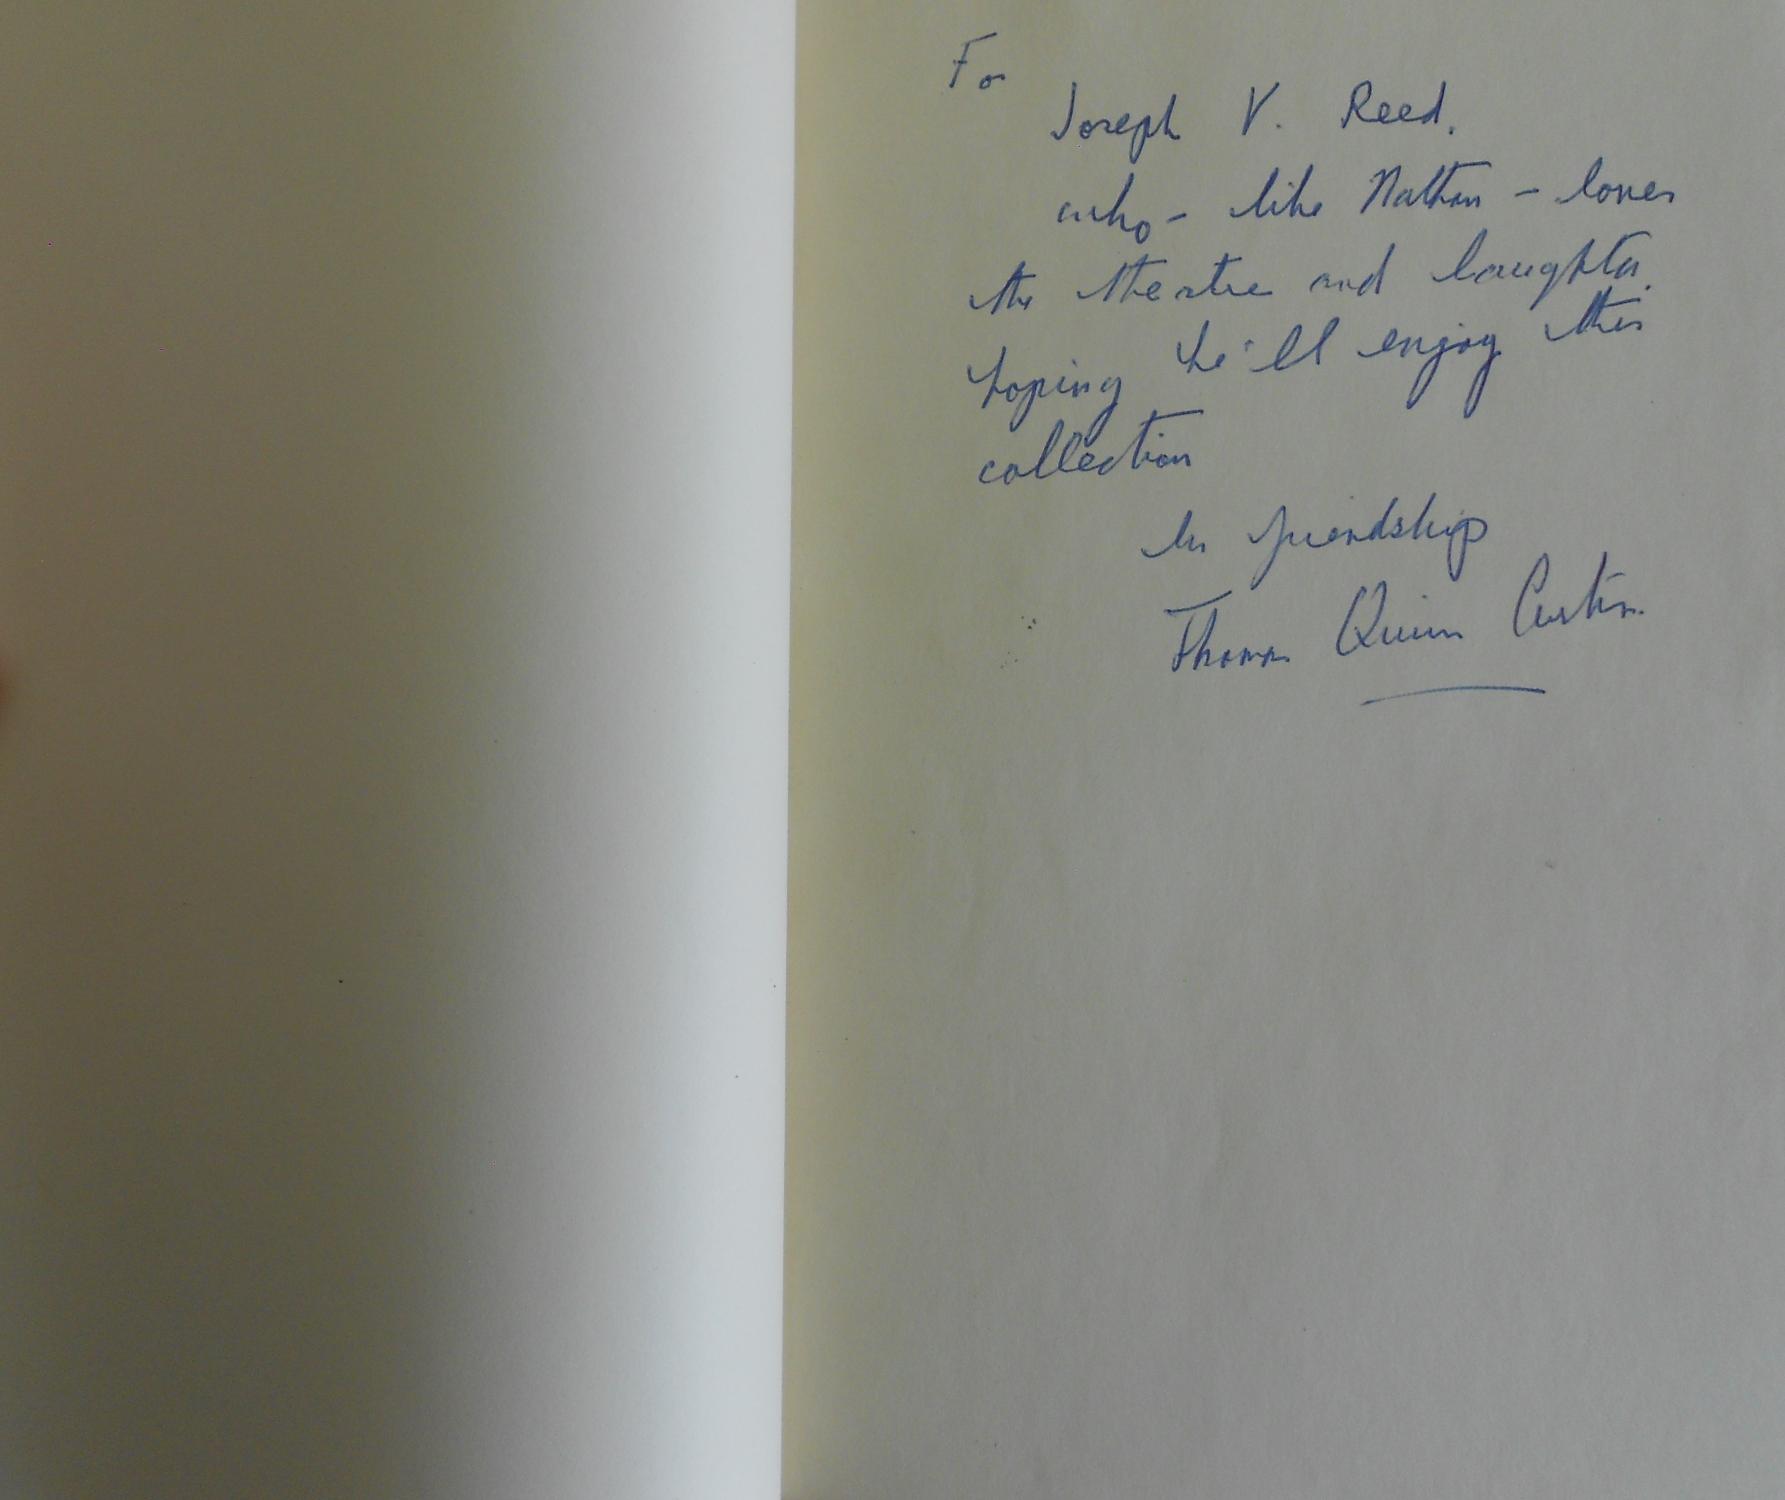 For
Joseph V. Reed.
who - like Nathan - loves
the theatre and laughter.
hoping he'll enjoy this
collection
In friendship
Thomas Quinn Curtiss